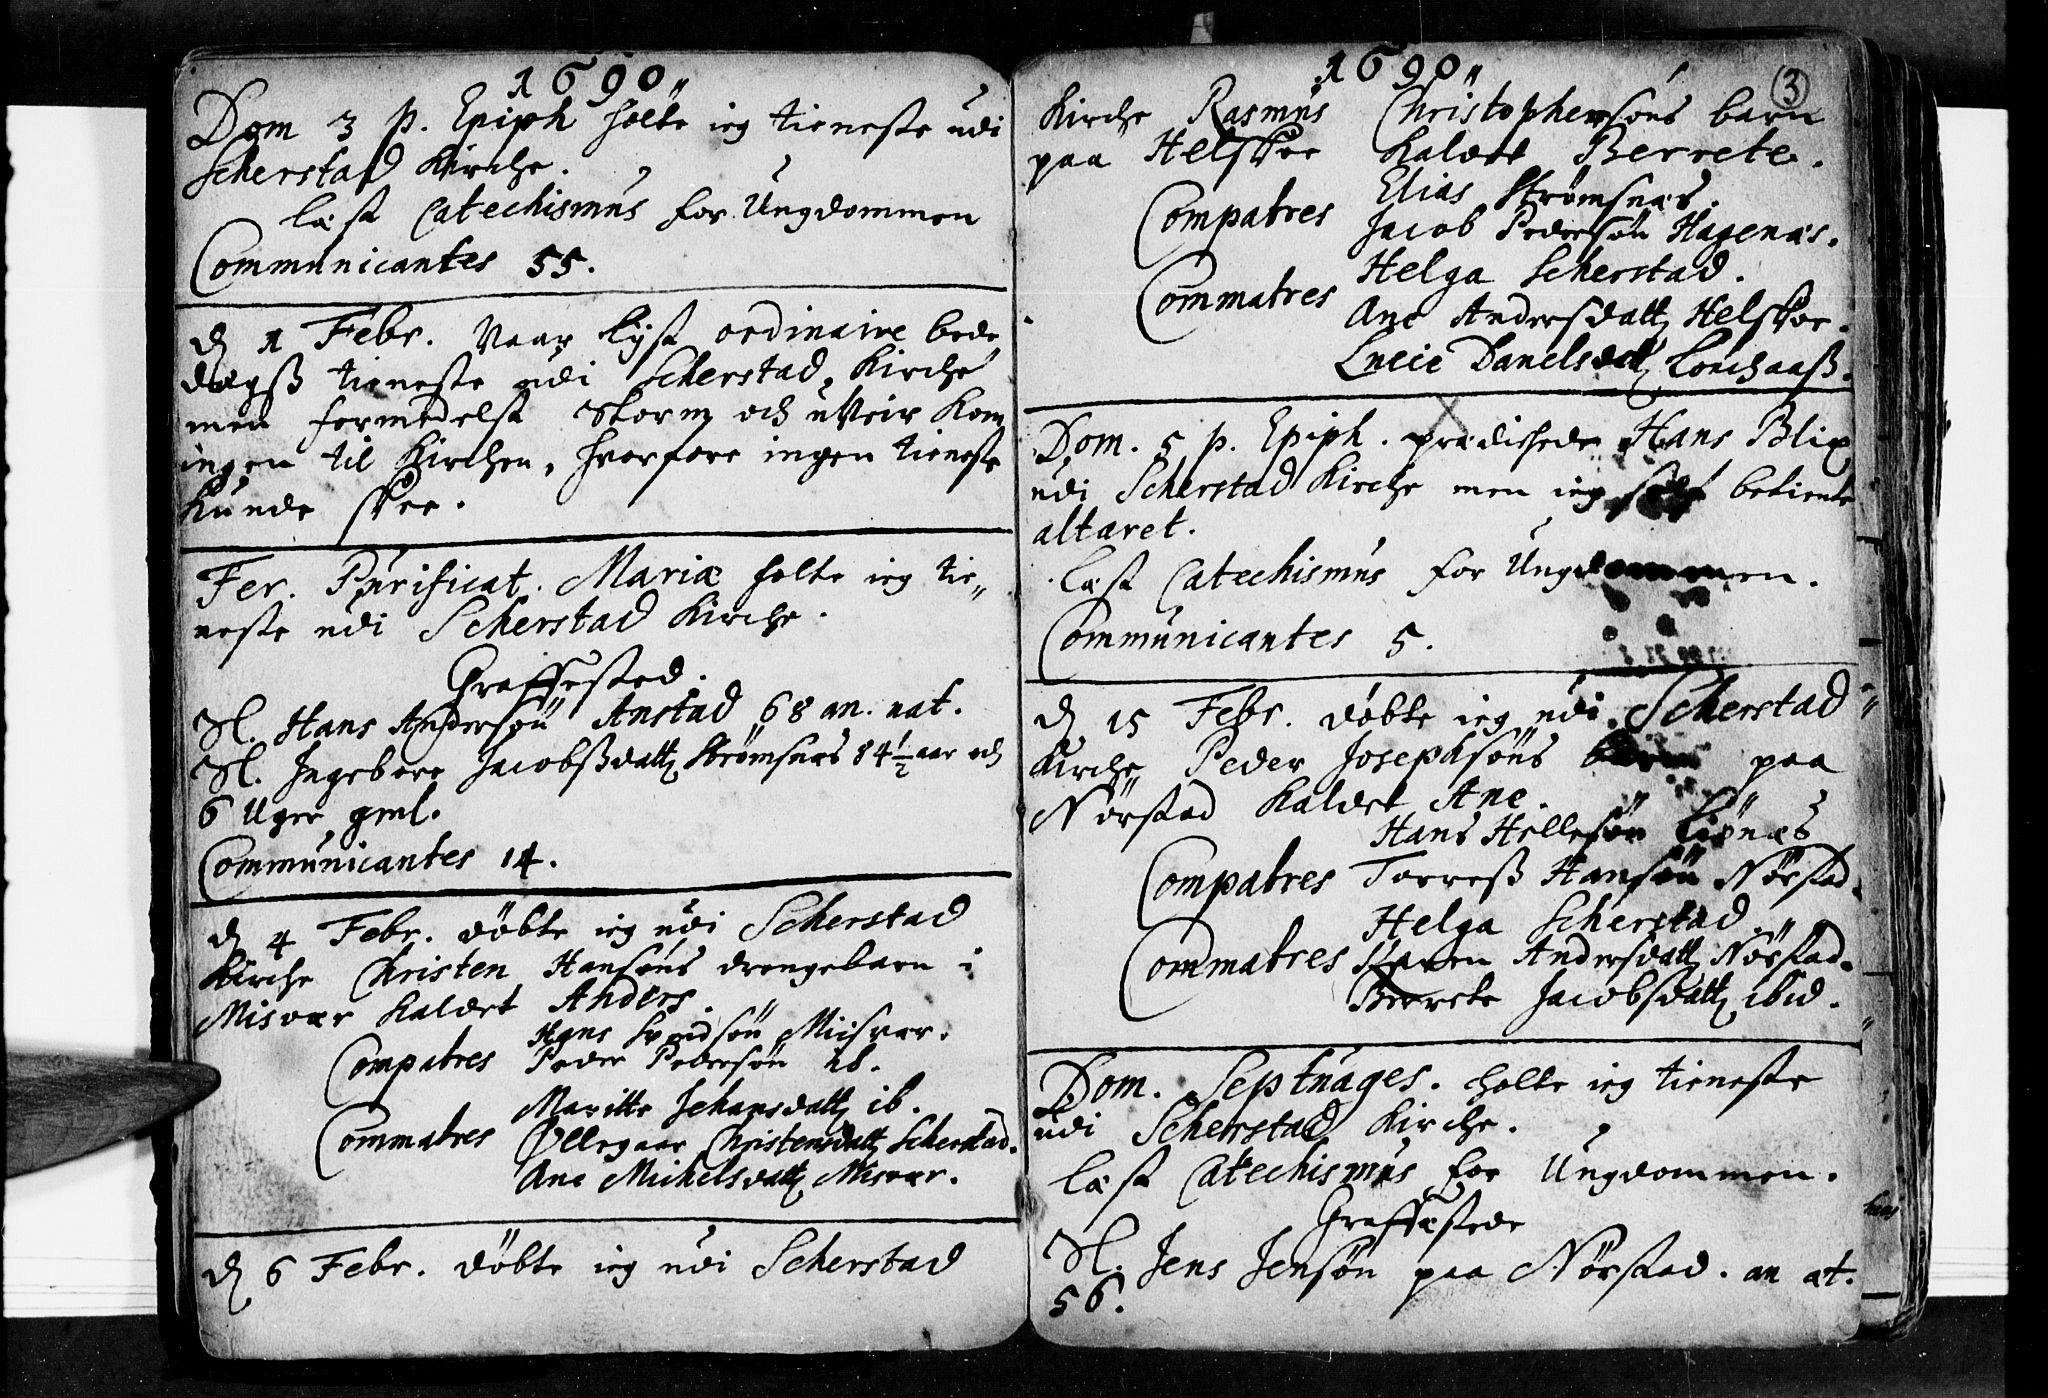 1690
Dom 3 p. Epiph holte ieg tieneste udi
Scherstad Kirche.
læst Catechismus for Ungdommen
Communicantes 55.
d 1 Febr. Vaar lyst ordinaire bede
dagß tieneste udi Scherstad Kirche
men formedelst storm och uveir kom
ingen til Kirchen, hvorfore ingen tieneste
kunde skee.
Fer. Purificat. Mariæ holte ieg tie-
neste udi Scherstad Kirche.
Graffested.
Sl. Hans Andersøn Anstad 68 an. nat.
Sl. Ingebore Jacobßdatt Strømsnæs 84½ aar och
6 Uger gml.
Communicantes 14.
d 4 Febr. døbte ieg udi Scherstad
Kirche Christen Hansøns drengebarn i
Misvær kaldet Anders.
Hans Svendsøn Misvær.
Compatres Peder Pedersøn ib.
Maritte Johansdatt ib.
Commatres Øllegaar Christensdatt Scherstad.
Ane Michelsdatt Misvær.
d 6 Febr. døbte ieg udi Scherstad
1690
3
Kirche Rasmus Christophersøns barn
paa Helskoe kaldet Berrete.
Elias Strømsnæs.
Compatres Jacob Pedersøn Hagenæs.
Helga Scherstad.
Commatres Ane Andersdatt Helskoe.
Lucie Danelsdatt Lonchaaß.
Dom. 5 p. Epiph. prædichede Hans Blix
udi Scherstad Kirche men ieg self betiente
altaret.
læst Catechismus for Ungdommen.
Communicantes 5.
d 15 Febr. døbte ieg udi Scherstad
Kirche Peder Josephsøns barn paa
Nørstad kaldet Ane.
Hans Hellesøn Liønæs
Compatres Torreß Hansøn Nørstad.
Helga Scherstad
Commatres Karen Andersdatt Nørstad.
Beroete Jacobsdatt ibid.
Dom. Septuages. holte ieg tieneste
udi Scherstad Kirche.
læst Catechismus for Ungdommen.
Graffestede
Sl. Jens Jensøn paa Nørstad. an at.
56.